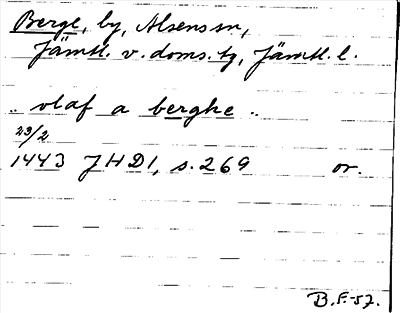 Berge, by, Alsens sn,
Jämtl. v. doms. tg, Jämtl. l.
.. olaf a berghe ..
23/2
1443 JHD1, s. 269 or.
B.F.-57.